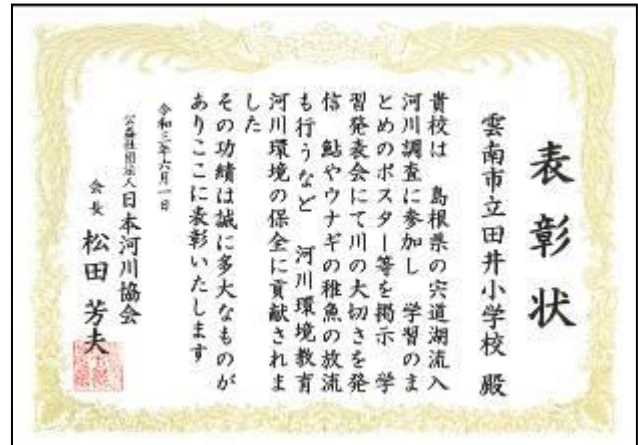 表彰状
雲南市立田井小学校 殿
貴校は 島根県の宍道湖流入
河川調査に参加し 学習のま
とめのポスター等を掲示 学
習発表会にて川の大切さを発
信 鮎やウナギの稚魚の放流
も行うなど 河川環境教育
河川環境の保全に貢献されま
した
その功績は誠に多大なものが
ありここに表彰いたします
令和三年六月一日
公益社団法人日本河川協会
会長 松田芳夫